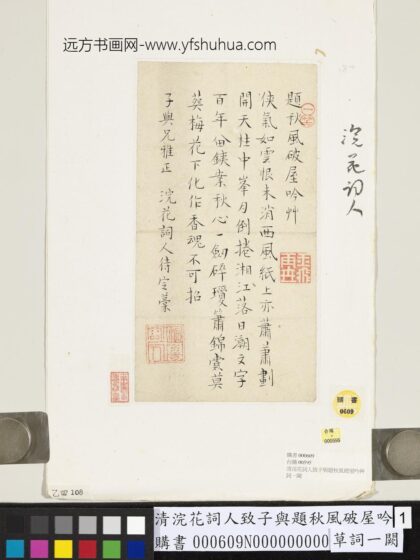 远方书画网-www.yfshuhua.com
浣花詞人
題秋風破屋吟艸
俠氣如雲恨未消西風紙上亦蕭蕭劃
開天柱中峯月倒捲湘江落日潮文字
百年
業秋心一劒碎瓊簫錦囊莫
葬梅花下化作香魂不可招
子與兄雅正 浣花詞人待定藁
購書
0609
購書 000609
乙四 108
清浣花詞人致子與題秋風破屋吟
草詞一闋
購書 000609N000000000
1